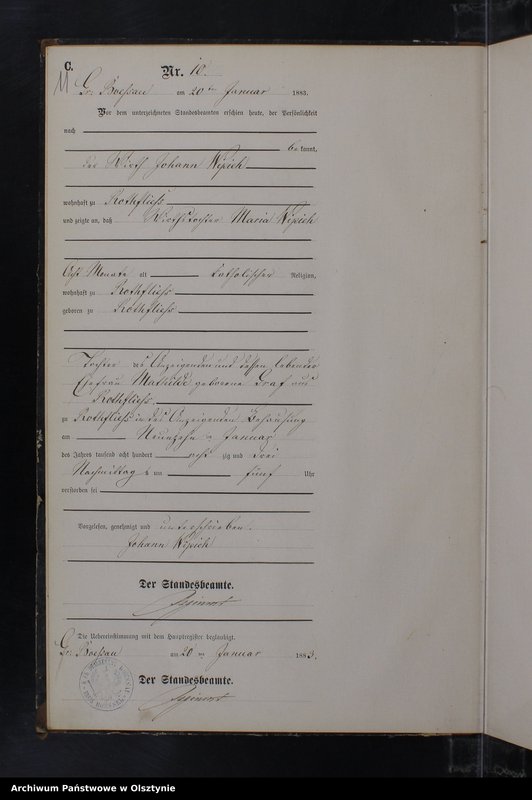 C.
11
Nr. 10.
Gr. Boeßau am 20ten Januar 1883.
Vor dem unterzeichneten Standesbeamten erschien heute, der Persönlichkeit
nach
be kannt,
der Wirth Johann
wohnhaft zu Rothfließ
und zeigte an, daß Wirthstochter Maria
Acht Monate alt katholischer Religion,
wohnhaft zu Rothfließ
geboren zu Rothfließ
Tochter des Anzeigenden und dessen lebender
Ehefrau Mathilde geborene Graf aus
Rothfließ
zu Rothfließ in des Anzeigenden Behausung
am Neunzehn ten Januar
des Jahres tausend acht hundert acht zig und drei
Nachmittag s um fünf Uhr
verstorben sei
Vorgelesen, genehmigt und unterschrieben.
Johann
Der Standesbeamte.
Die Uebereinstimmung mit dem Hauptregister beglaubigt.
Gr. Boeßau am 20 ten Januar 1883.
Der Standesbeamte.
Archiwum Państwowe w Olsztynie